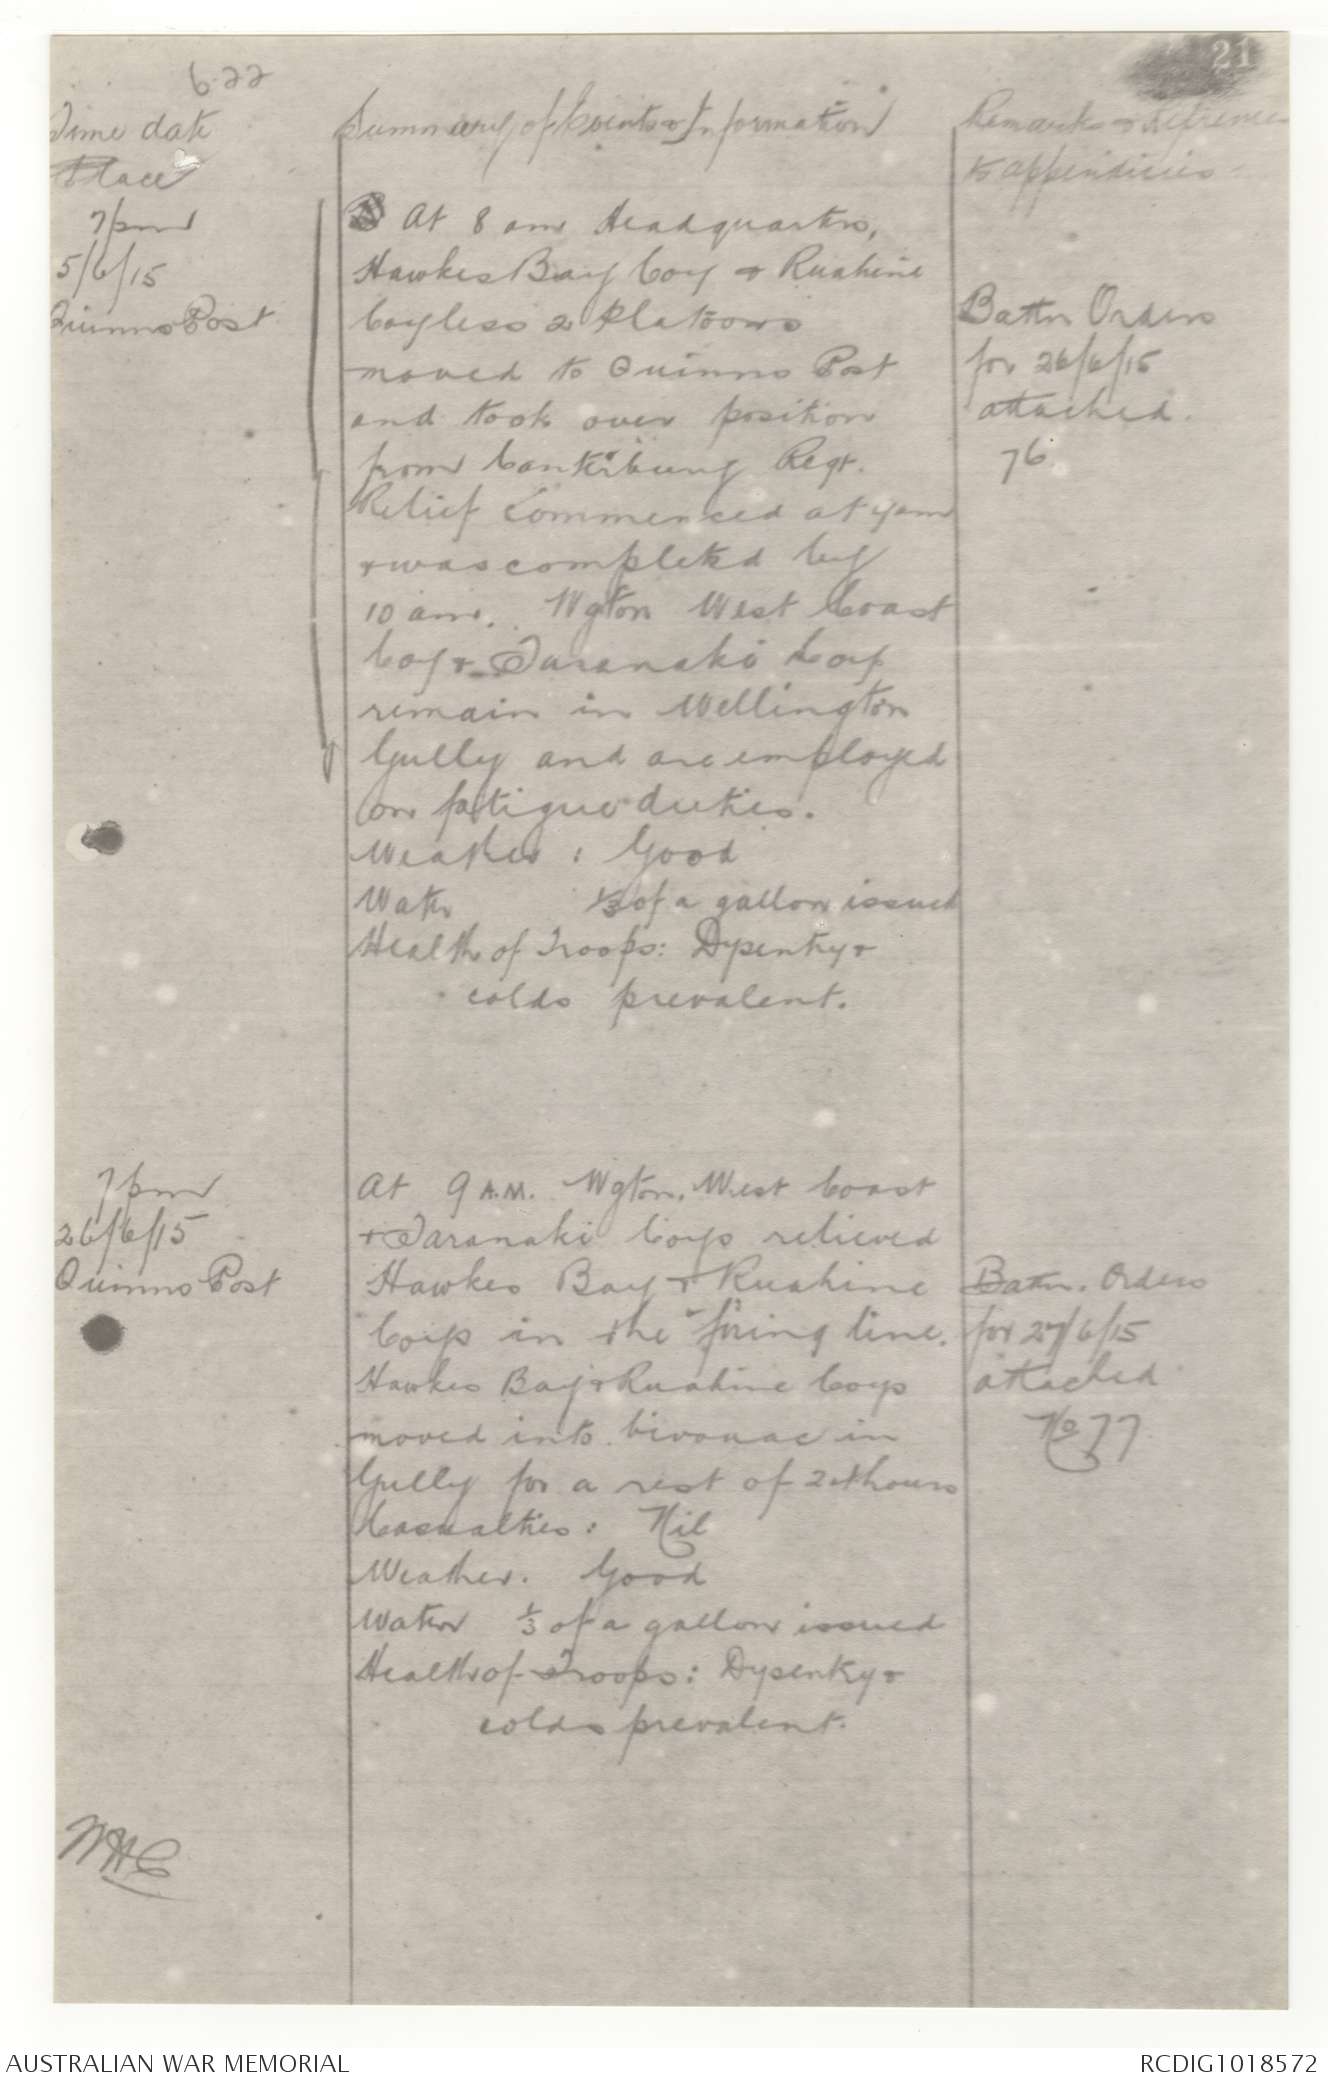 21
6.22
Time date
Place
Summary of Events & Information
Remarks & references
to appendicies
7pm
5/6/15
Quinns Post
At 8 am Headquarters,
Hawkes Bay Coy & Ruahine
Coy less 2 Platoons
moved to Quinns Post
and took over position
from Canterbury Regt.
Relief commenced at 9am
& was completed by
10 am. Wgton West Coast
Coy & Taranaki Coy
remain in Wellington
Gully and are employed
on fatigue duties.
Weather : Good
Water 1/3 of a gallon issued
Health of Troops: Dysentry &
colds prevalent.
Battn Orders
for 26/6/15
attached.
76
7pm
26/6/15
Quinns Post
At 9 A.M. Wgton. West Coast
& Taranaki Coys relieved
Hawkes Bay & Ruahine
Coys in the firing line.
Hawkes Bay & Ruahine Coys
moved into bivouac in
Gully for a rest of 24 hours
Casualties: Nil
Weather. Good
Water 1/3 of a gallon issued
Health of Troops: Dysentry &
colds prevalent.
Battn. Orders
for 27/6/15
attached
No 77.
WHC
AUSTRALIAN WAR MEMORIAL
RCDIG1018572